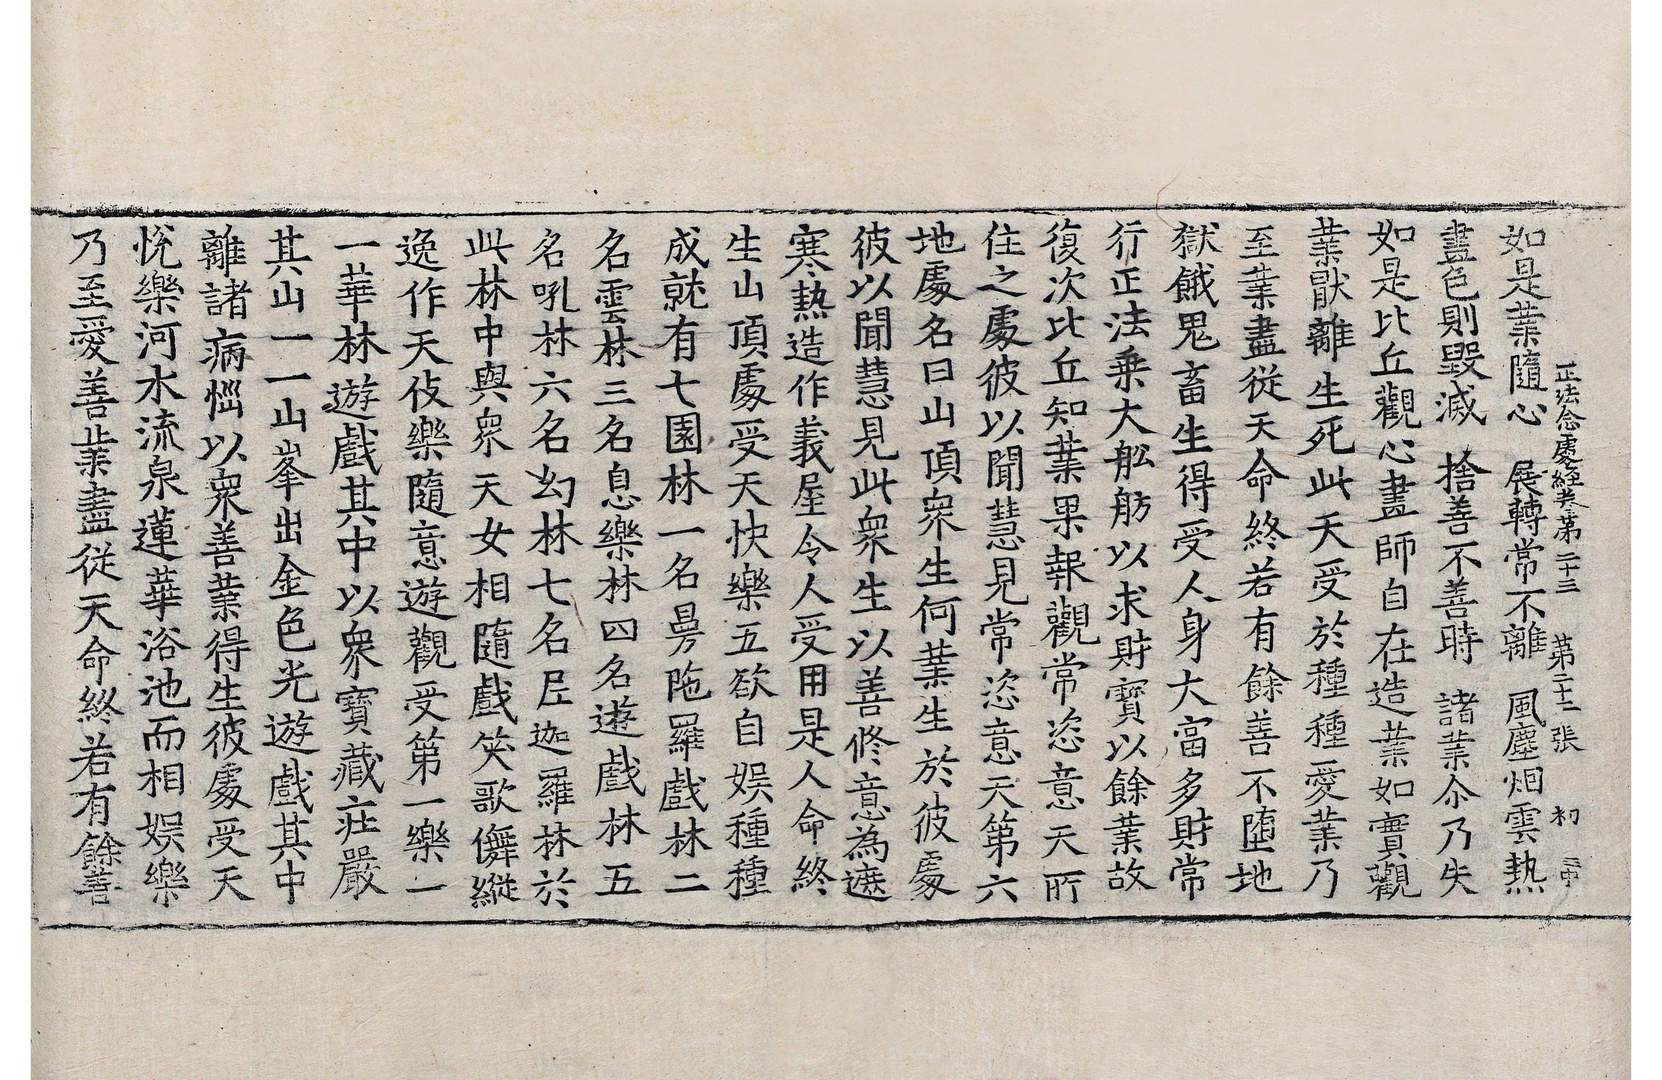 正法念處經卷第二十三　第二十二張　初
如是業隨心　展轉常不離　風塵烟雲熱
盡色則毀滅　捨善不善時　諸業尒乃失
如是比丘觀心畫師自在造業如實觀
業猒離生死此天受於種種愛業乃
至業盡從天命終若有餘善不墮地
獄餓鬼畜生得受人身大富多財常
行正法乗大舩舫以求財寶以餘業故
復次比丘知業果報觀常恣意天所
住之處彼以聞慧見常恣意天第六
地處名曰山頂衆生何業生於彼處
彼以聞慧見此衆生以善修意為遮
寒熱造作義屋令人受用是人命終
生山頂處受天快樂五欲自娛種種
成就有七園林一名曼陁羅戲林二
名雲林三名息樂林四名遊戲林五
名吼林六名幻林七名𡰱迦羅林於
此林中與衆天女相隨戲笑歌儛縱
逸作天伎樂隨意遊觀受第一樂一
一華林遊戲其中以衆寶藏莊嚴
其山一一山峯出金色光遊戲其中
離諸病惱以衆善業得生彼處受天
悅樂河水流泉蓮華浴池而相娛樂
乃至愛善業盡從天命終若有餘善